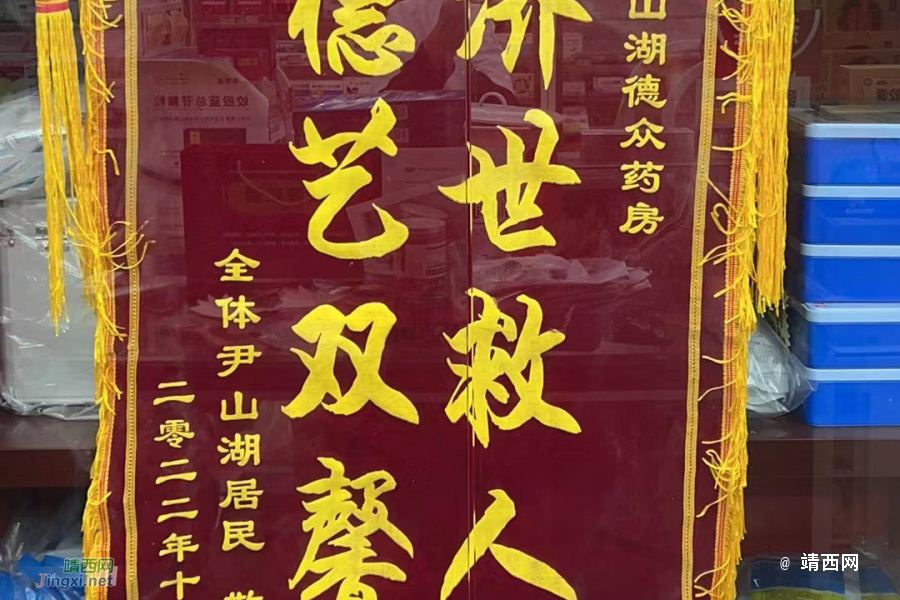 山湖德众药房
济世救人
德艺双馨
全体尹山湖居民
二零二二年十
靖西网
Jingxi.net
@ 靖西网